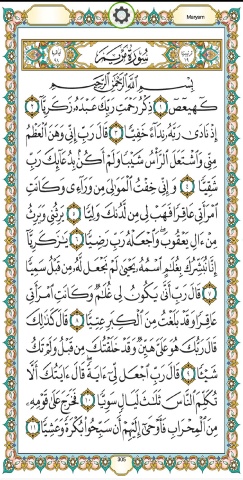 Maryam
سُورَةُ مَرْيَمَ
بِسْمِ ٱللَّهِ ٱلرَّحْمَٰنِ ٱلرَّحِيمِ
كٓهيعٓصٓ ١ ذِكْرُ رَحْمَتِ رَبِّكَ عَبْدَهُۥ زَكَرِيَّآ ٢
إِذْ نَادَىٰ رَبَّهُۥ نِدَآءً خَفِيًّا ٣ قَالَ رَبِّ إِنِّي وَهَنَ ٱلْعَظْمُ
مِنِّي وَٱشْتَعَلَ ٱلرَّأْسُ شَيْبًا وَلَمْ أَكُنۢ بِدُعَآئِكَ رَبِّ
شَقِيًّا ٤ وَإِنِّي خِفْتُ ٱلْمَوَٰلِيَ مِن وَرَآءِي وَكَانَتِ
ٱمْرَأَتِي عَاقِرًا فَهَبْ لِي مِن لَّدُنكَ وَلِيًّا ٥ يَرِثُنِي وَيَرِثُ
مِنْ ءَالِ يَعْقُوبَ ۖ وَٱجْعَلْهُ رَبِّ رَضِيًّا ٦ يَٰزَكَرِيَّآ
إِنَّا نُبَشِّرُكَ بِغُلَٰمٍ ٱسْمُهُۥ يَحْيَىٰ لَمْ نَجْعَل لَّهُۥ مِن قَبْلُ سَمِيًّا
٧ قَالَ رَبِّ أَنَّىٰ يَكُونُ لِي غُلَٰمٌ وَكَانَتِ ٱمْرَأَتِي
عَاقِرًا وَقَدْ بَلَغْتُ مِنَ ٱلْكِبَرِ عِتِيًّا ٨ قَالَ كَذَٰلِكَ
قَالَ رَبُّكَ هُوَ عَلَيَّ هَيِّنٌ وَقَدْ خَلَقْتُكَ مِن قَبْلُ وَلَمْ تَكُ
شَيْـًٔا ٩ قَالَ رَبِّ ٱجْعَل لِّيٓ ءَايَةً ۚ قَالَ ءَايَتُكَ أَلَّا
تُكَلِّمَ ٱلنَّاسَ ثَلَٰثَ لَيَالٍ سَوِيًّا ١٠ فَخَرَجَ عَلَىٰ قَوْمِهِۦ
مِنَ ٱلْمِحْرَابِ فَأَوْحَىٰٓ إِلَيْهِمْ أَن سَبِّحُوا۟ بُكْرَةً وَعَشِيًّا ١١
305